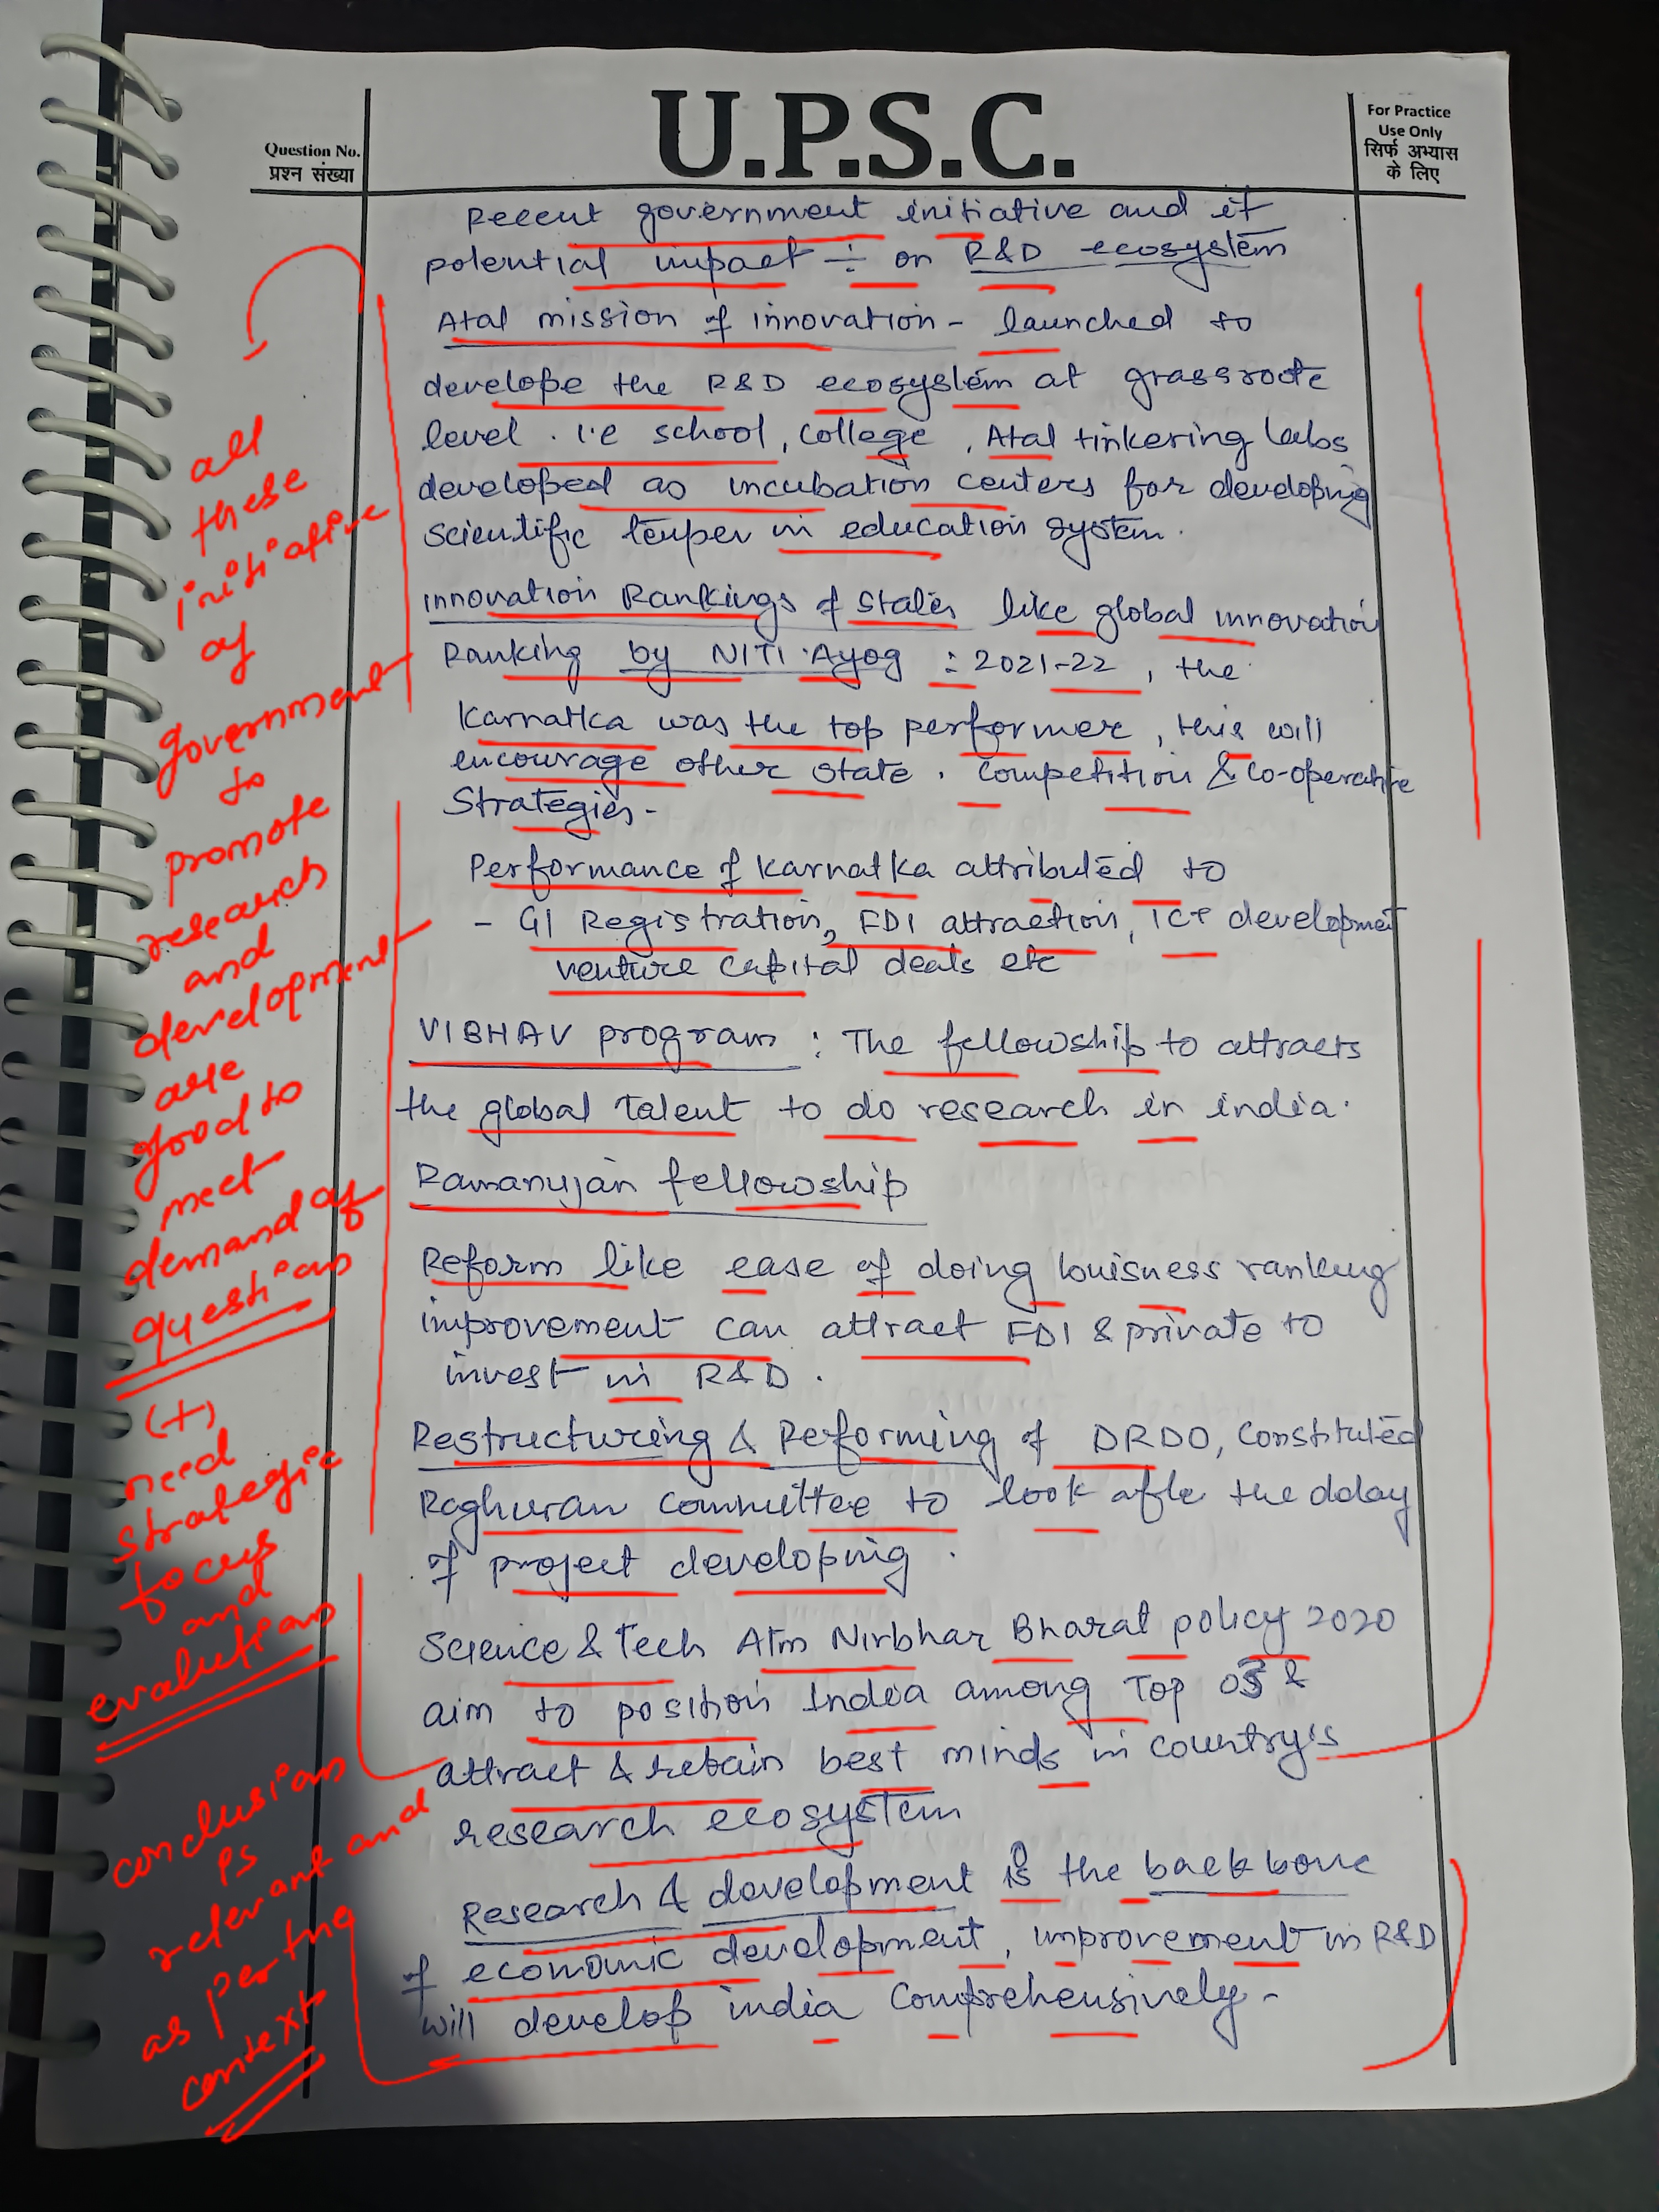 U.P.S.C.
Question No.
प्रश्न संख्या
For Practice
Use Only
सिर्फ अभ्यास
के लिए
Recent government initiative and it
potential impact ÷ on R&D ecosystem
Atal mission of innovation - launched to
develope the R&D ecosystem at grassroote
level. i.e school, college, Atal tinkering labs
developed as incubation centers for developing
scientific temper in education system.
innovation Rankings of States like global innovation
Ranking by NITI Ayog : 2021-22, the
Karnatka was the top performer, this will
encourage other state. Competition & co-operative
Strategies-
Performance of Karnatka attributed to
- GI Registration, FDI attraction, ICT development
venture capital deals etc
VIBHAV program : The fellowship to attracts
the global talent to do research in india.
Ramanujan fellowship
Reform like ease of doing buisness ranking
improvement can attract FDI & private to
invest in R&D.
Restructuring & Reforming of DRDO, Constituted
Raghuran committee to look after the delay
of project developing.
Science & Tech Atm Nirbhar Bharat policy 2020
aim to position India among Top 03 &
attract & retain best minds in country's
research ecosystem
Research & development is the backbone
of economic development, improvement in R&D
will develop india comprehensively-
all
these
initiative
of
government
to
promote
research
and
development
are
good to
meet
demand of
question
(+)
need
strategic
focus
and
evaluation
conclusion
is
relevant and
as per the
context